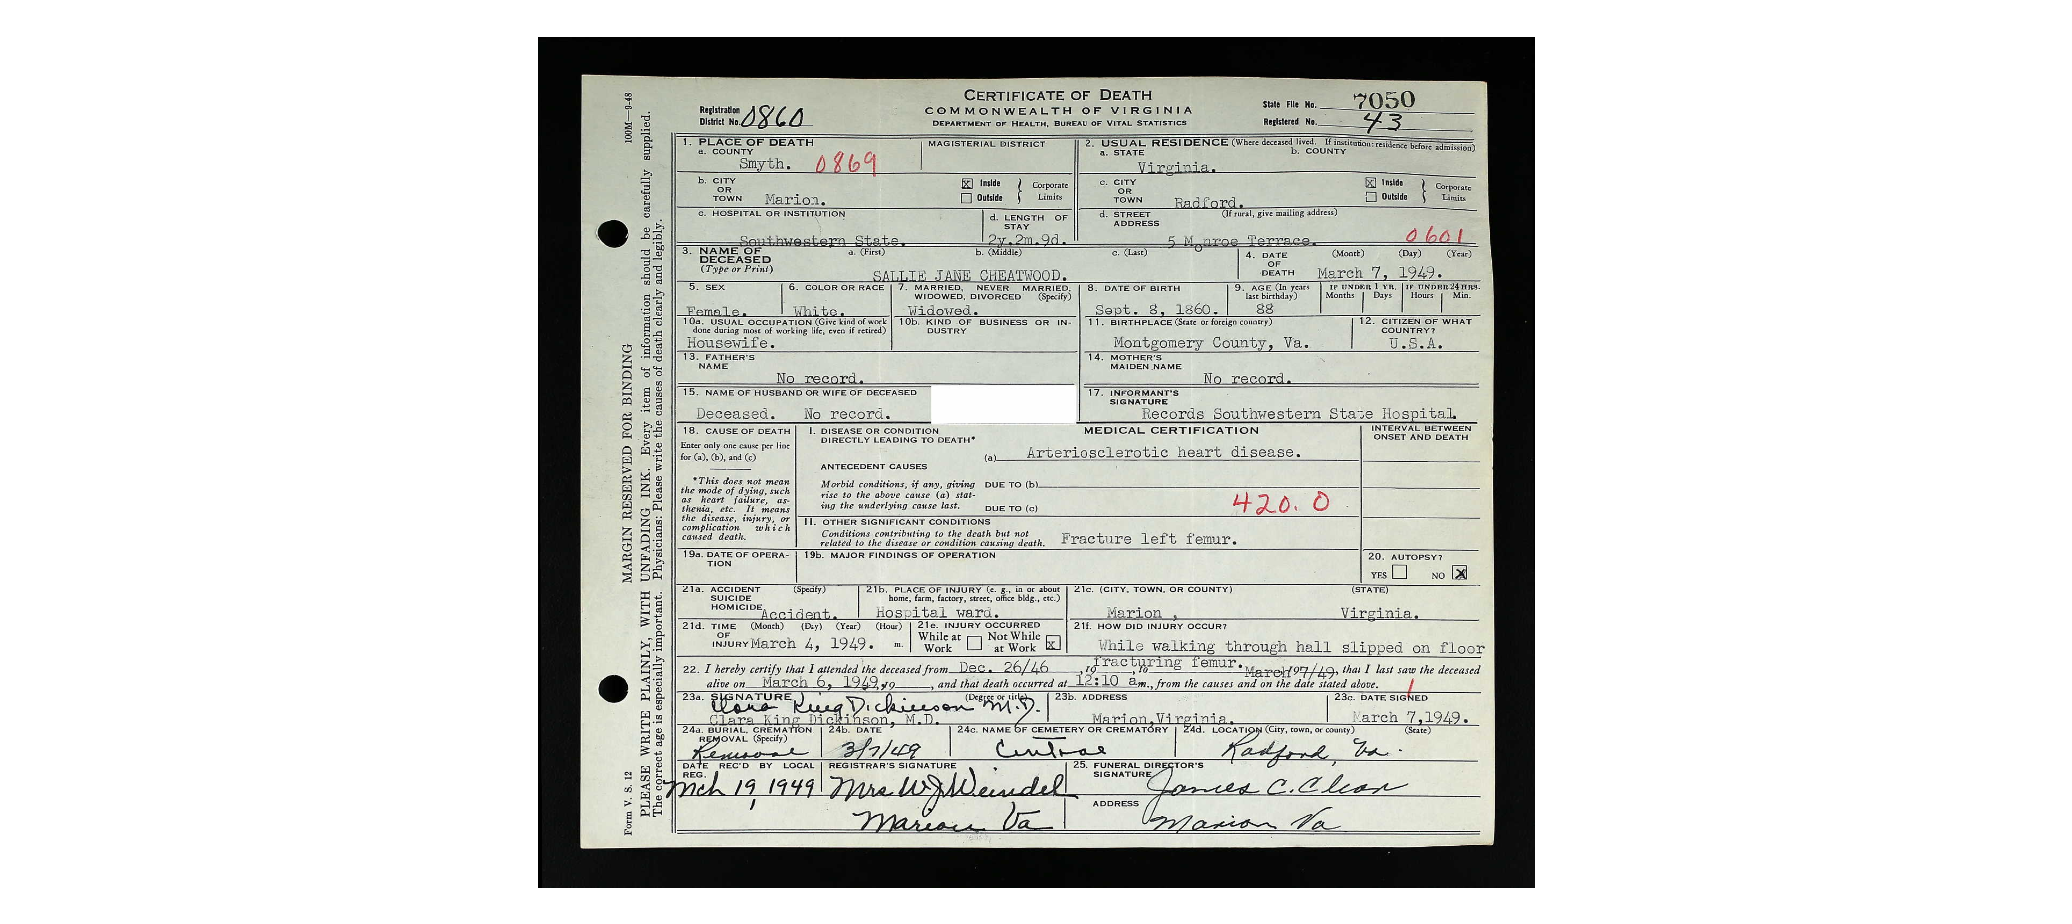 CERTIFICATE OF DEATH
COMMONWEALTH OF VIRGINIA
DEPARTMENT OF HEALTH, BUREAU OF VITAL STATISTICS
Registration District No. 0860
State File No. 7050
Registered No. 43
1. PLACE OF DEATH
a. COUNTY
Smyth. 0869
MAGISTERIAL DISTRICT
2. USUAL RESIDENCE (Where deceased lived. If institution: residence before admission)
a. STATE
b. COUNTY
Virginia.
b. CITY OR TOWN Marion.
☒ Inside
☐ Outside
Corporate Limits
c. CITY OR TOWN Radford.
☒ Inside
☐ Outside
Corporate Limits
c. HOSPITAL OR INSTITUTION
Southwestern State.
d. LENGTH OF STAY
2y.2m.9d.
d. STREET ADDRESS (If rural, give mailing address)
5 Monroe Terrace. 0601
3. NAME OF DECEASED
(Type or Print)
a. (First) b. (Middle) c. (Last)
SALLIE JANE CHEATWOOD.
4. DATE OF DEATH
(Month) (Day) (Year)
March 7, 1949.
5. SEX
Female.
6. COLOR OR RACE
White.
7. MARRIED, NEVER MARRIED, WIDOWED, DIVORCED (Specify)
Widowed.
8. DATE OF BIRTH
Sept. 8, 1860.
9. AGE (In years last birthday)
88
IF UNDER 1 YR.
Months Days
IF UNDER 24 HRS.
Hours Min.
10a. USUAL OCCUPATION (Give kind of work done during most of working life, even if retired)
Housewife.
10b. KIND OF BUSINESS OR INDUSTRY
11. BIRTHPLACE (State or foreign country)
Montgomery County, Va.
12. CITIZEN OF WHAT COUNTRY?
U.S.A.
13. FATHER'S NAME
No record.
14. MOTHER'S MAIDEN NAME
No record.
15. NAME OF HUSBAND OR WIFE OF DECEASED
Deceased. No record.
17. INFORMANT'S SIGNATURE
Records Southwestern State Hospital.
18. CAUSE OF DEATH
Enter only one cause per line for (a), (b), and (c)
*This does not mean the mode of dying, such as heart failure, asthenia, etc. It means the disease, injury, or complication which caused death.
MEDICAL CERTIFICATION
INTERVAL BETWEEN ONSET AND DEATH
I. DISEASE OR CONDITION DIRECTLY LEADING TO DEATH*
(a) Arteriosclerotic heart disease.
ANTECEDENT CAUSES
Morbid conditions, if any, giving rise to the above cause (a) stating the underlying cause last.
DUE TO (b)
DUE TO (c)
420.0
II. OTHER SIGNIFICANT CONDITIONS
Conditions contributing to the death but not related to the disease or condition causing death.
Fracture left femur.
19a. DATE OF OPERATION
19b. MAJOR FINDINGS OF OPERATION
20. AUTOPSY?
YES ☐ NO ☒
21a. ACCIDENT SUICIDE HOMICIDE (Specify)
Accident.
21b. PLACE OF INJURY (e. g., in or about home, farm, factory, street, office bldg., etc.)
Hospital ward.
21c. (CITY, TOWN, OR COUNTY) (STATE)
Marion, Virginia.
21d. TIME OF INJURY (Month) (Day) (Year) (Hour)
March 4, 1949. m.
21e. INJURY OCCURRED
While at Work ☐ Not While at Work ☒
21f. HOW DID INJURY OCCUR?
While walking through hall slipped on floor
fracturing femur.
22. I hereby certify that I attended the deceased from Dec. 26/46, 19, to March 7/49, that I last saw the deceased
alive on March 6, 1949, 19, and that death occurred at 12:10 a m., from the causes and on the date stated above.
23a. SIGNATURE (Degree or title)
Clara King Dickinson M.D.
Clara King Dickinson, M.D.
23b. ADDRESS
Marion, Virginia.
23c. DATE SIGNED
March 7, 1949.
24a. BURIAL, CREMATION REMOVAL (Specify)
Removal
24b. DATE
3/7/49
24c. NAME OF CEMETERY OR CREMATORY
Central
24d. LOCATION (City, town, or county) (State)
Radford, Va.
DATE REC'D BY LOCAL REG.
Mch 19, 1949
REGISTRAR'S SIGNATURE
Mrs W J Weindel
Marion Va
25. FUNERAL DIRECTOR'S SIGNATURE
James C. Clear
ADDRESS
Marion Va
100M—9-48
MARGIN RESERVED FOR BINDING
PLEASE WRITE PLAINLY, WITH UNFADING INK. Every item of information should be carefully supplied.
The correct age is especially important. Physicians: Please write the causes of death clearly and legibly.
Form V. S. 12